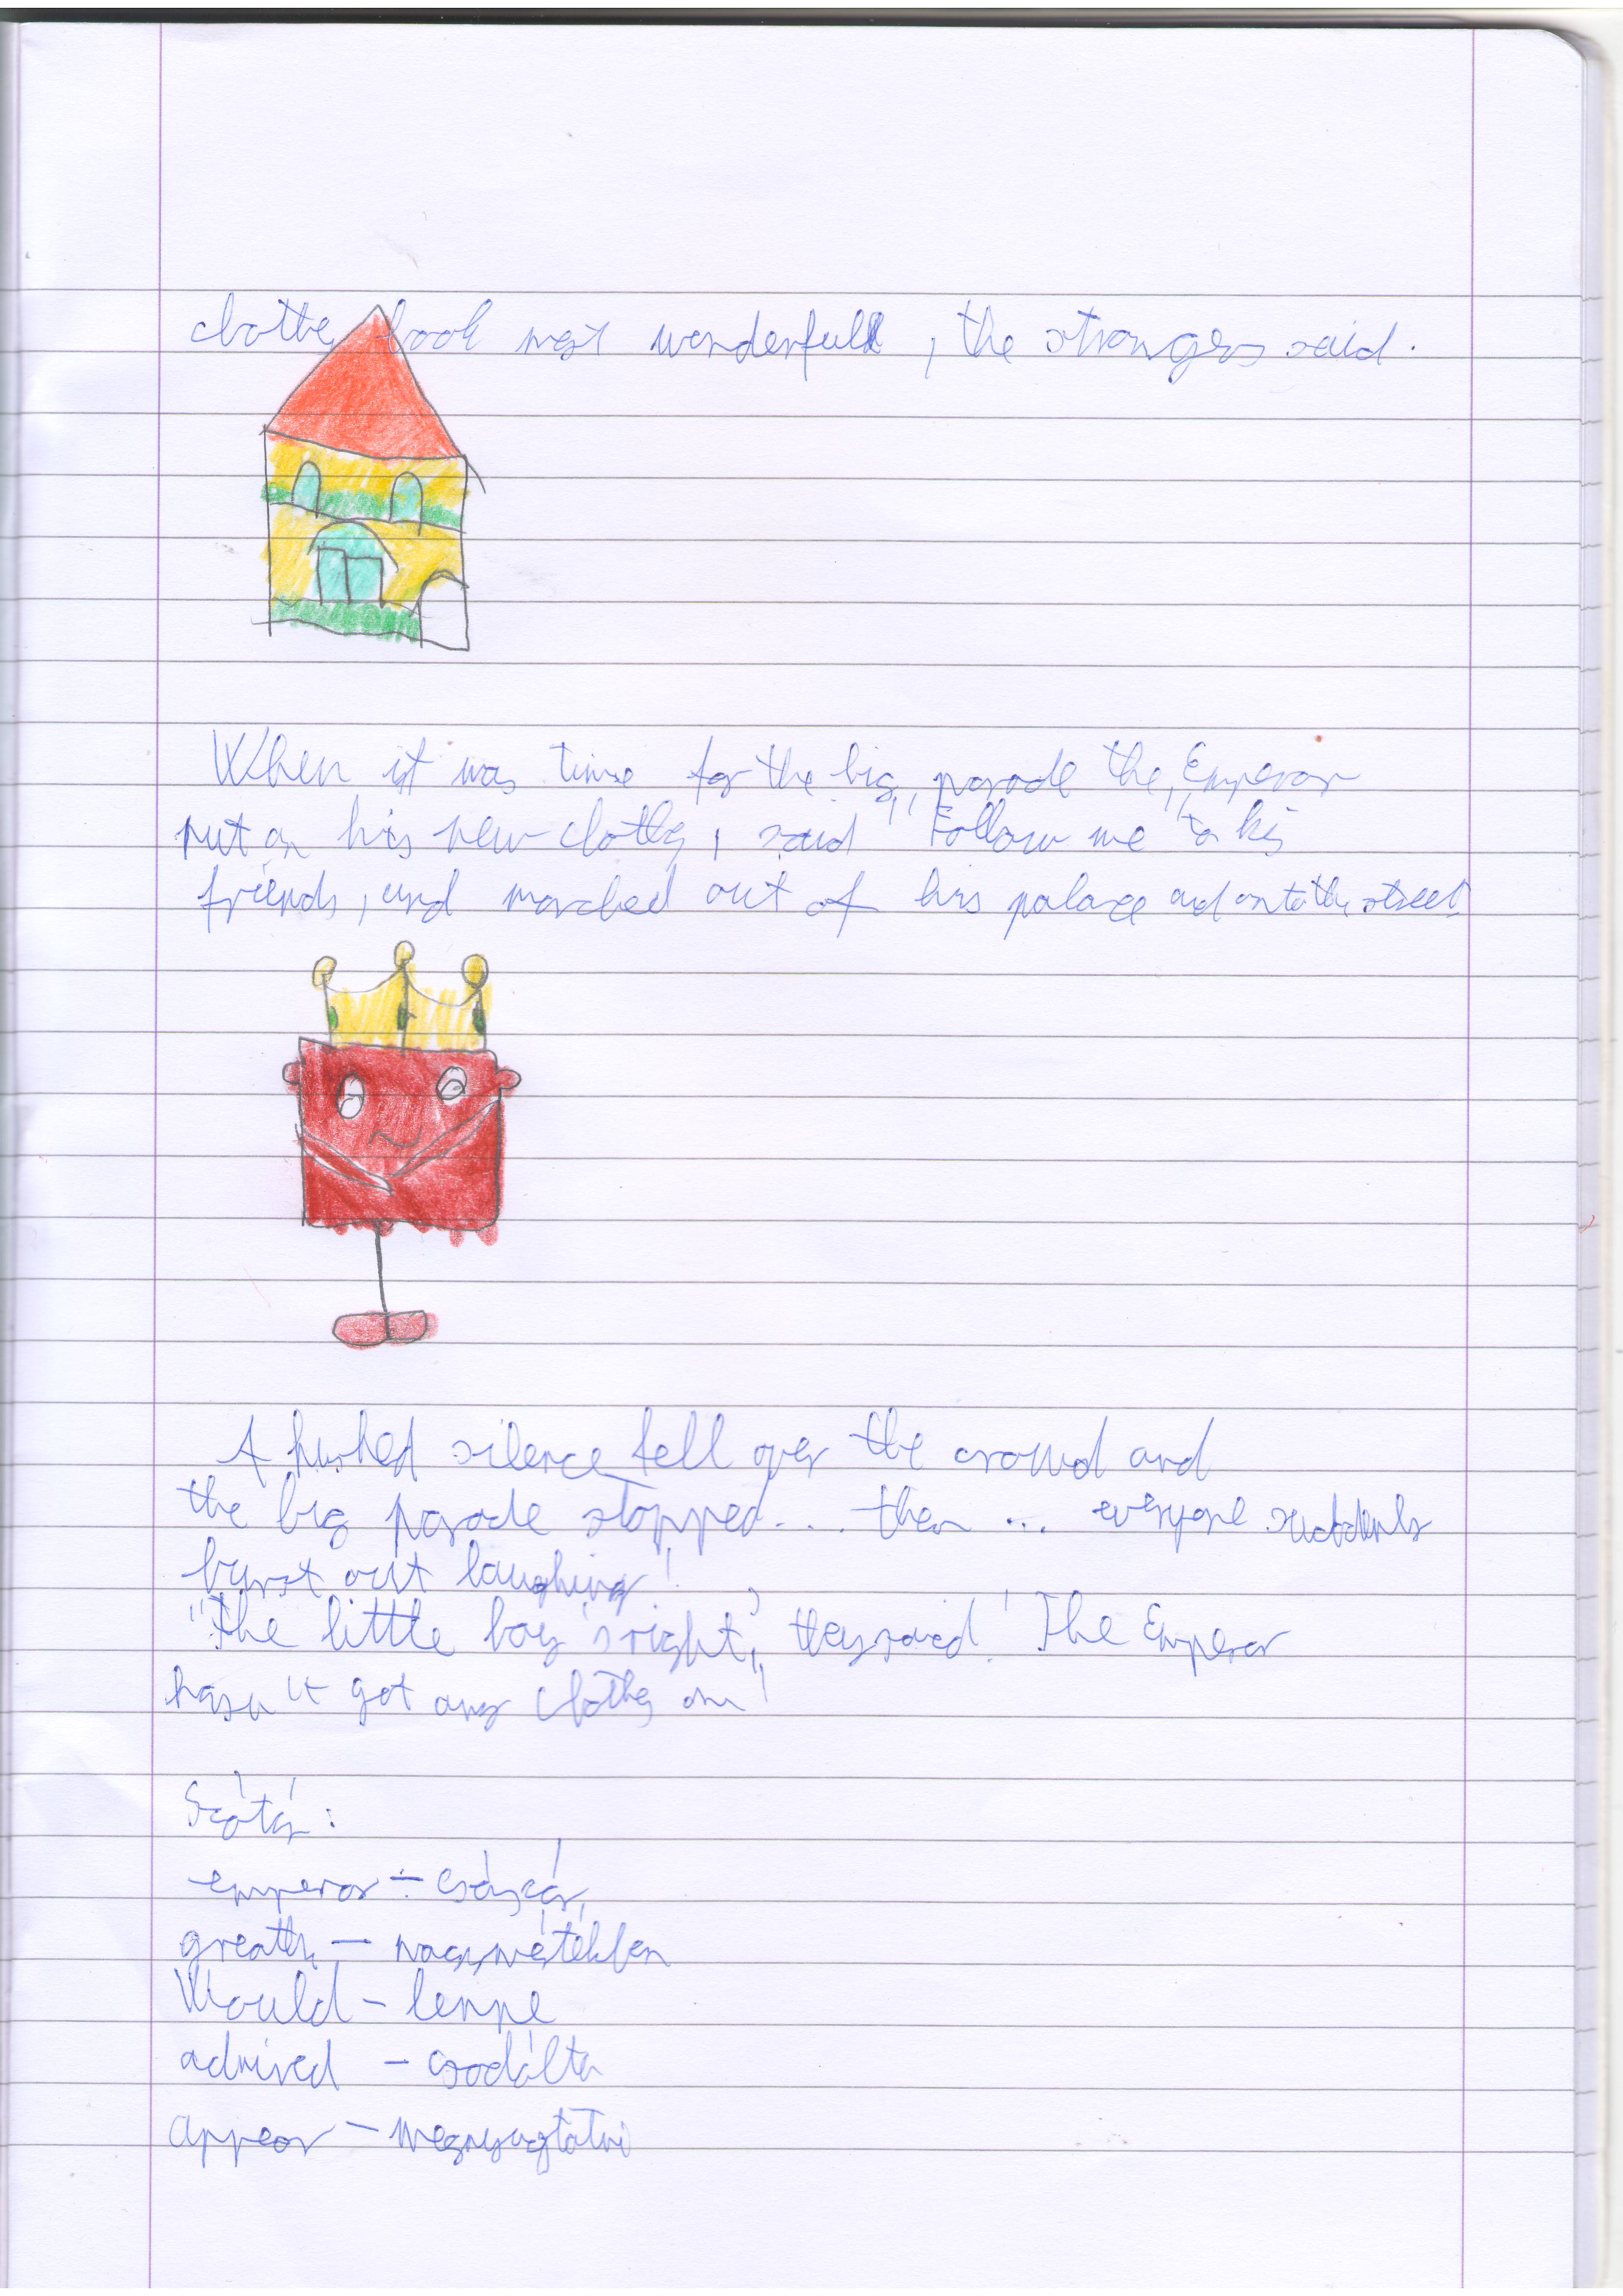 clothes look most wonderfull, the strangers said.
When it was time for the big parade the Emperor
put on his new clothes, said "Follow me" to his
friends, and marched out of his palace and onto the street
A hushed silence fell over the crowd and
the big parade stopped... then ... everyone suddenly
burst out laughing!
"The little boy's right," they said! "The Emperor
hasn't got any clothes on!"
Szótár:
emperor – császár
greatly – nagymértékben
Would – lenne
admired – csodálta
appear – megnyugtatni